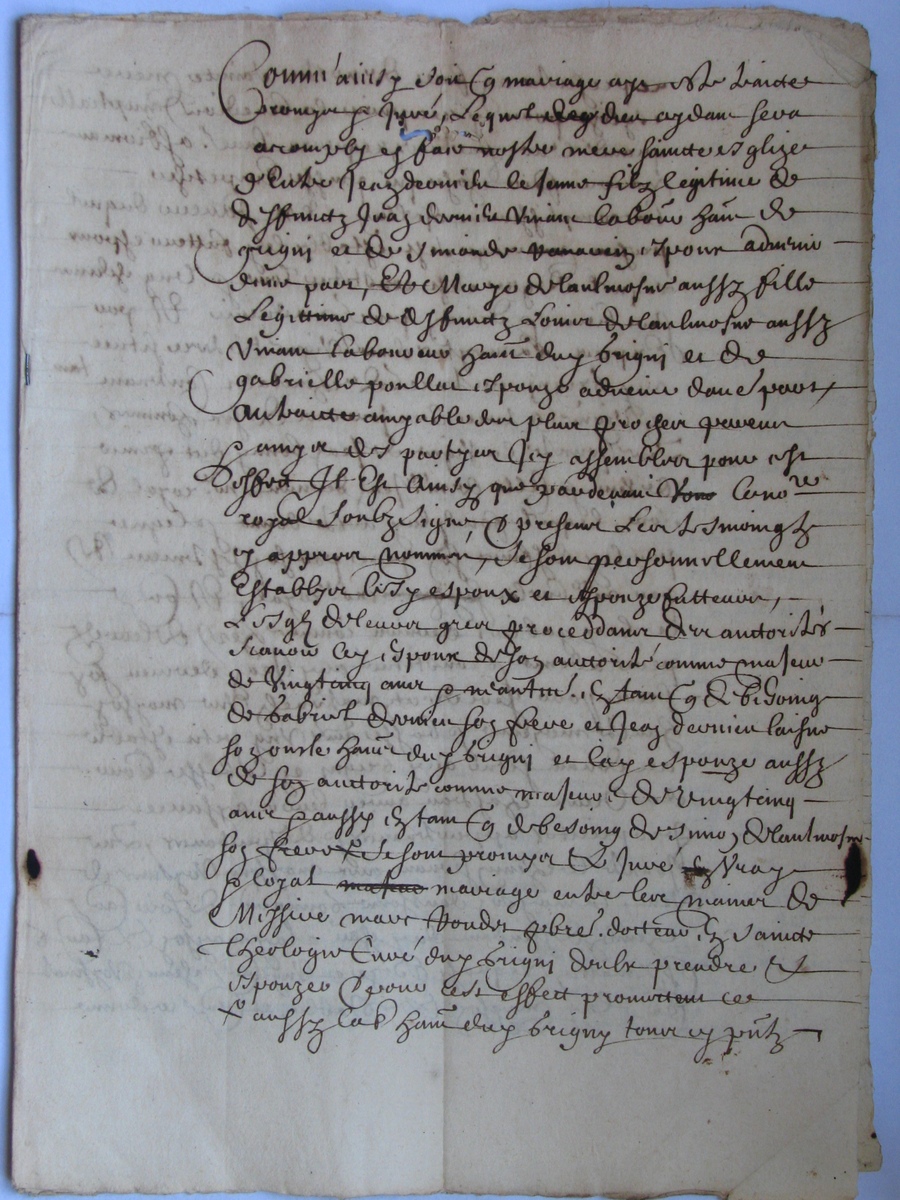 Comm'ainsy soit q mariage aye esté traicté
promys & juré, lequel dieu aydant sera
accomply en face nostre mere saincte esglize
d'entre Jean dernieu le jeune filz legitime de
deffunctz Jean dernieu vivant labour hant de
brigni et de Simonde espoux advenir
d'une part, Et Marye delaulmosne aussy fille
Legittime de deffunctz Loius delaulmosne aussy
vivant laboureur hant dud brigni et de
gabrielle poullat espouze advenir d'aue part,
An traicté amyable des plus proches parens
& amys des partyes Icy assembles pour cest
effect Il Est Ainsy que pardevant le nore
royal soubzsigné & presens Les tesmoingtz
cy appres nommés, se sont personnellement
Establys lesdy espoux et espouze futteurs,
Lesqlz de leurs gres proceddans des auctorités
scavoir ledy espoux de son auctorité comme majeur
de vingtcinq ans & neantmt. En tant q de besoing
de Gabriel dernieu son frere et Jean dernieu laisné
son oncle hants dud brigni et lad espouze aussy
de son auctorité comme majeure de vingtcinq
ans & aussy En tant q de besoing de simon delaulmosne
son frere x Se sont promys & Juré En vray
& loyal mariage entre les mains de
Missire marc prbre. docteur En saincte
theologie Curé dud brigni de se prendre &
espouzer & pour cest effect promettent ces
x aussy labr hant dud brigny tous cy pntz